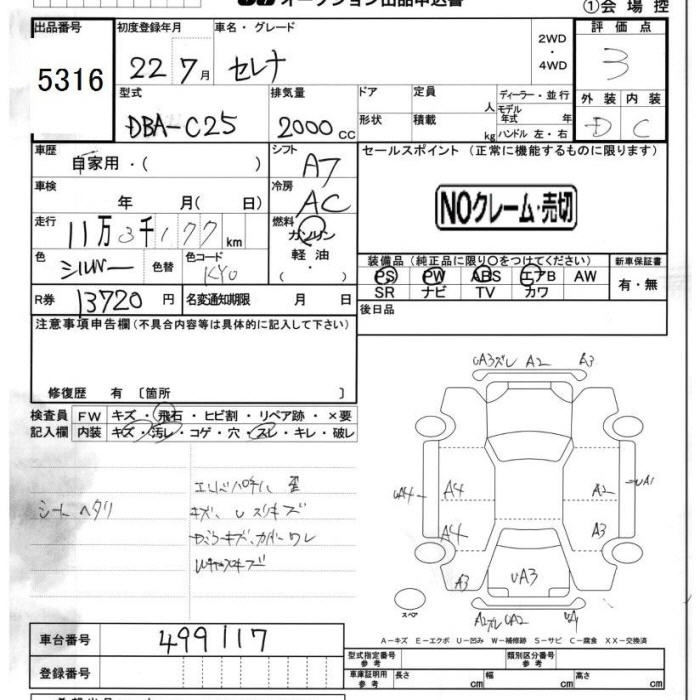 オークション出品申込書
①会場控
出品番号
5316
初度登録年月
22 7月
車名・グレード
セレナ
2WD
・
4WD
評価点
3
型式
DBA-C25
排気量
2000cc
ドア
形状
定員 人
積載 kg
ディーラー・並行
モデル年式 年
ハンドル 左・右
外装 内装
D C
車歴
自家用・( )
シフト
A7
セールスポイント(正常に機能するものに限ります)
NOクレーム・売切
車検 年 月( 日)
冷房
AC
走行 11万3千177km
燃料
ガソリン
軽油
( ・ )
色 シルバー 色替
色コード KY0
装備品(純正品に限り〇をつけてください)
PS PW ABS エアB AW
SR ナビ TV カワ
新車保証書
有・無
R券 13720円
名変通知期限 月 日
後日品
注意事項申告欄(不具合内容等は具体的に記入して下さい)
修復歴 有〔箇所 〕
検査員 FW キズ・飛石・ヒビ割・リペア跡・×要
記入欄 内装 キズ・汚レ・コゲ・穴・スレ・キレ・破レ
シートヘタリ
キズ、Uスリキズ
UA3ズレ A2 A3
UA4 A4 A2 UA1
A4 A3
A3 UA3
スペア
A2ズレ UA2
A-キズ E-エクボ U-凹み W-補修跡 S-サビ C-腐食 XX-交換済
車台番号 499117
登録番号
型式指定番号 参考
類別区分番号 参考
車庫証明用 参考 長さ cm 幅 cm 高さ cm